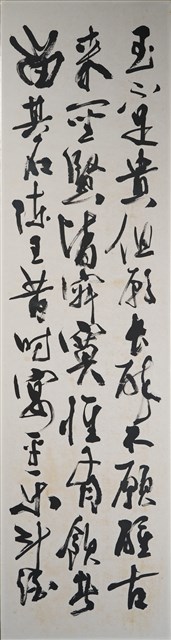 玉不足貴但願長醉不願醒古
來聖賢皆寂寞惟有飲者
留其名陳王昔時宴平樂斗酒